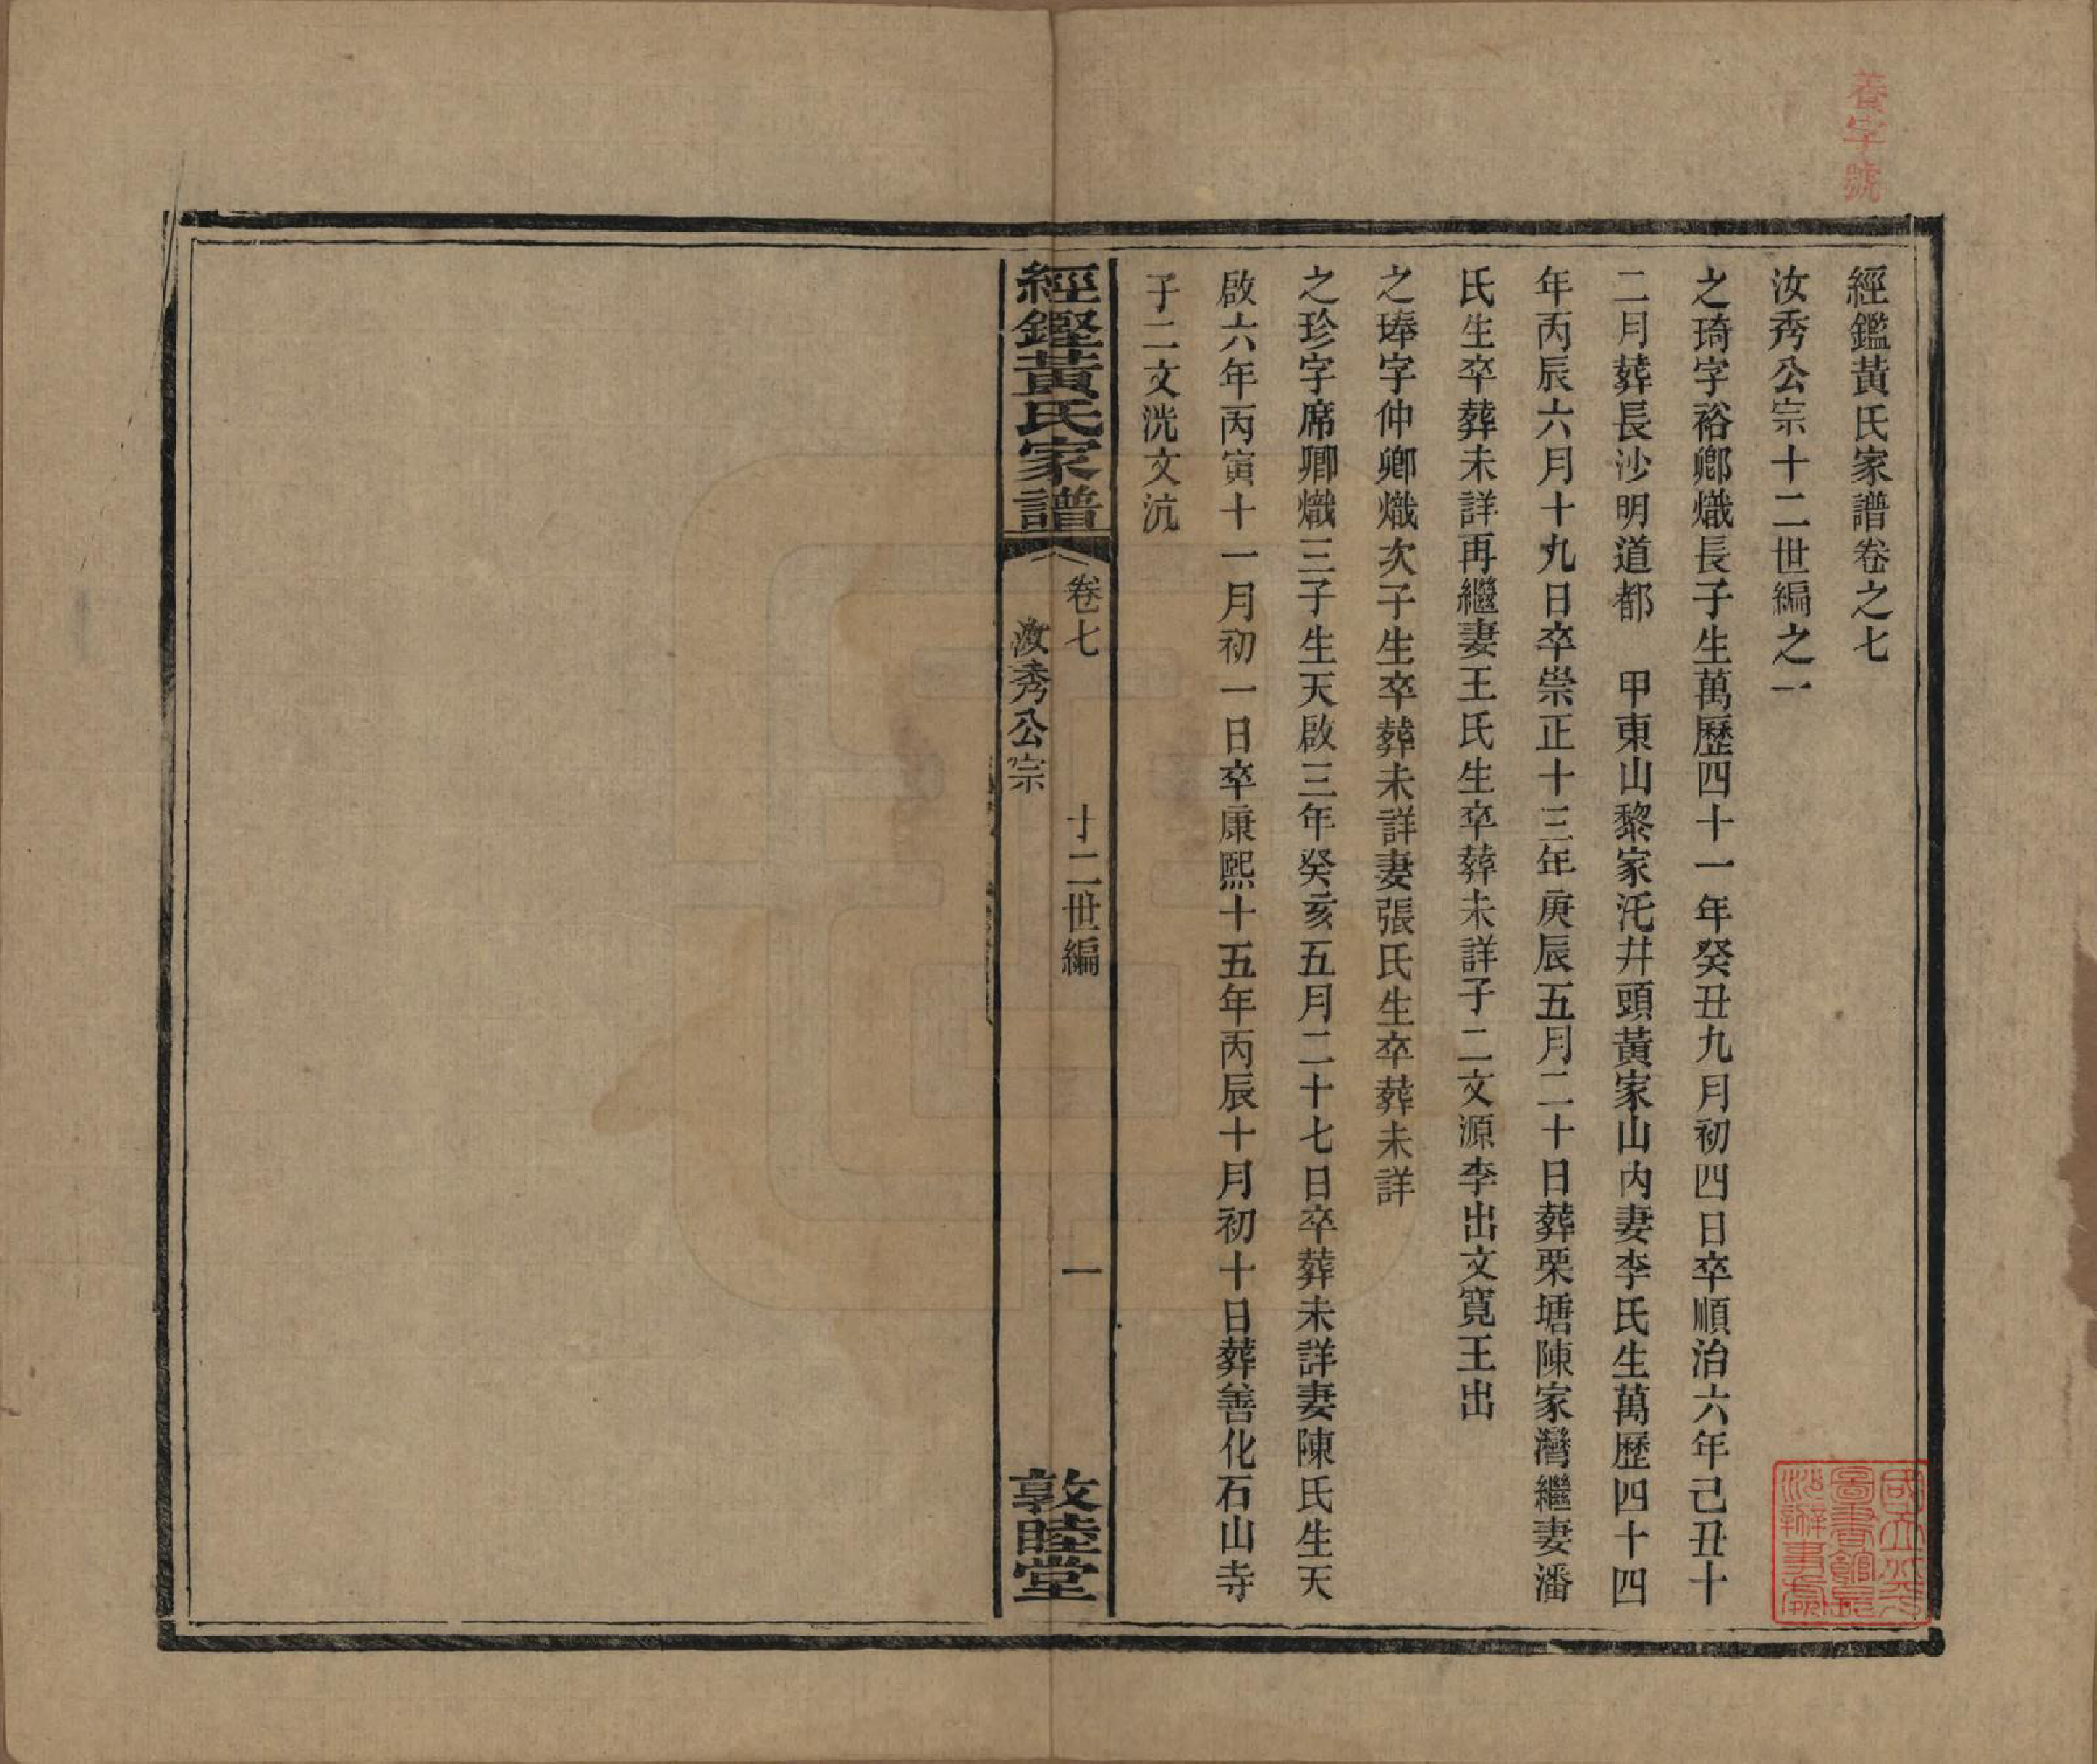 養字號
經鑑黃氏家譜卷之七
汝秀公宗十二世編之一
之琦字裕卿熾長子生萬歷四十一年癸丑九月初四日卒順治六年己丑十
二月葬長沙明道都　甲東山黎家汑井頭黃家山內妻李氏生萬歷四十四
年丙辰六月十九日卒崇正十三年庚辰五月二十日葬栗塘陳家灣繼妻潘
氏生卒葬未詳再繼妻王氏生卒葬未詳子二文源李出文寬王出
之琫字仲卿熾次子生卒葬未詳妻張氏生卒葬未詳
之珍字席卿熾三子生天啟三年癸亥五月二十七日卒葬未詳妻陳氏生天
啟六年丙寅十一月初一日卒康熙十五年丙辰十月初十日葬善化石山寺
子二文洸文沆
經鏗黃氏家譜
卷七
十二世編
一
汝秀公宗
敦睦堂
國立北平
圖書館長
沙辦事處